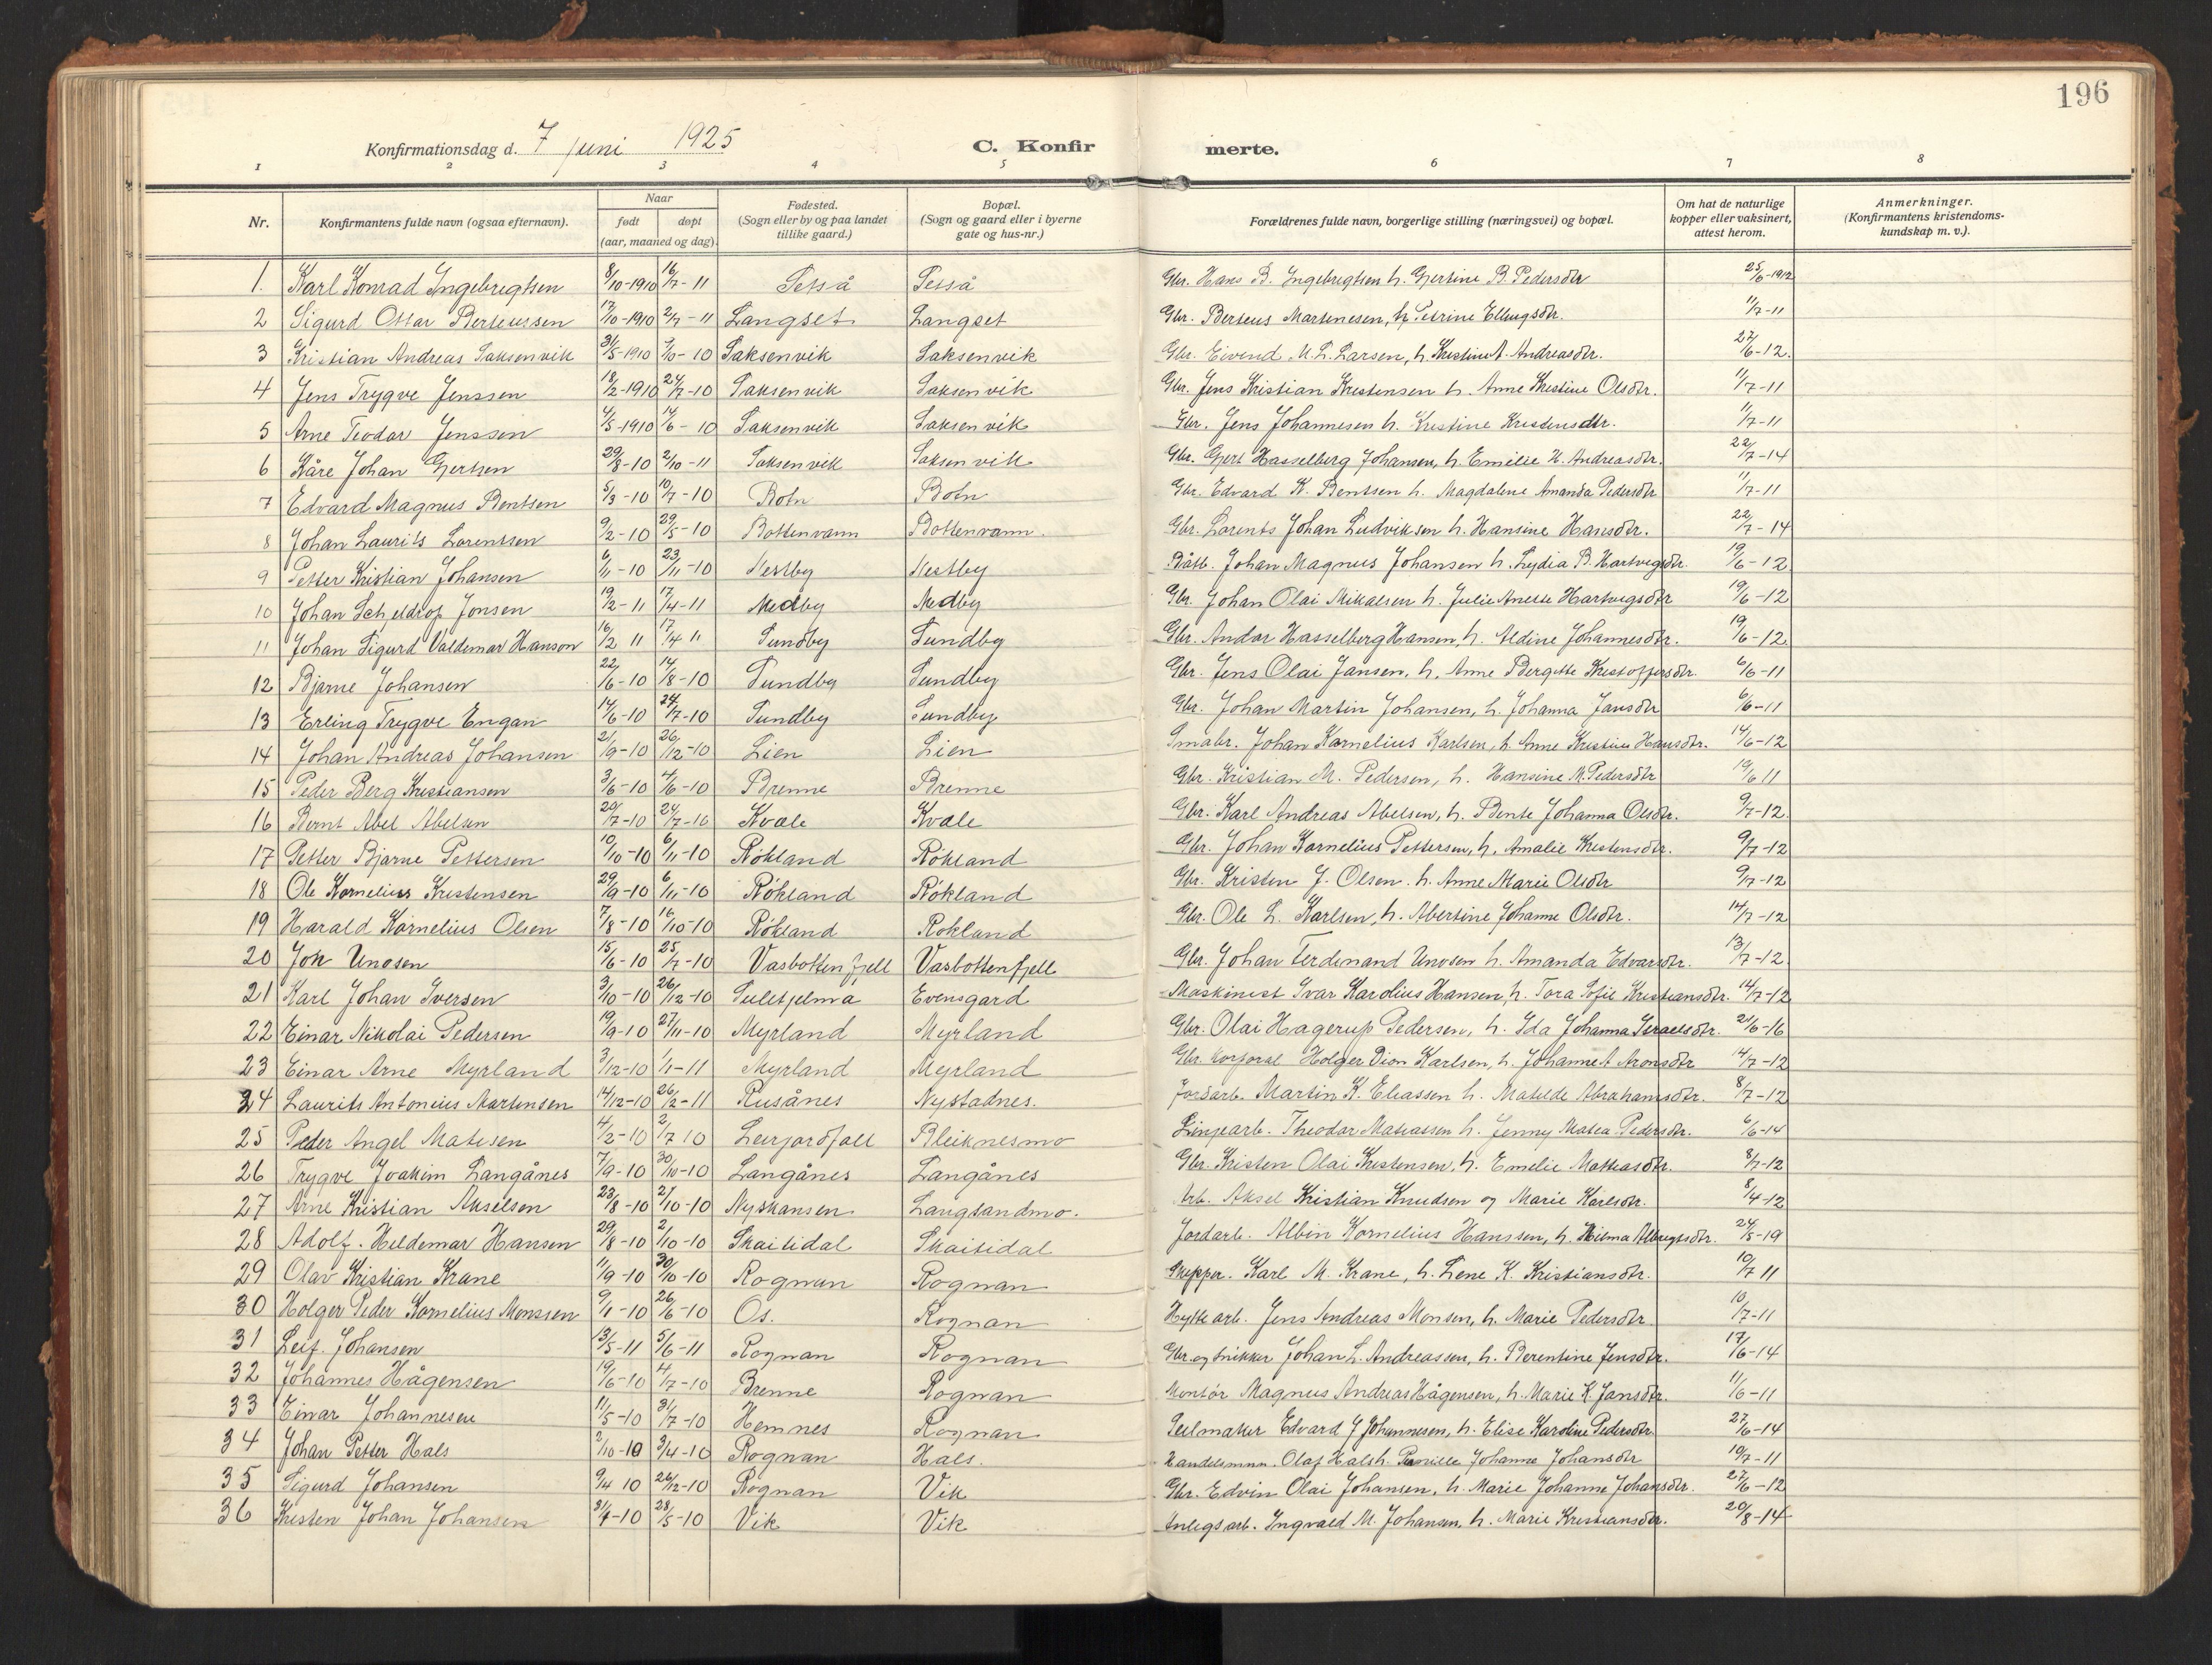 196
Konfirmationsdag d. 7 juni 1925 C. Konfirmerte.
1 2 3 4 5 6 7 8
Nr. Konfirmantens fulde navn (ogsaa efternavn). Naar født døpt (aar, maaned og dag). Fødested. (Sogn eller by og paa landet tillike gaard.) Bopæl. (Sogn og gaard eller i byerne gate og hus-nr.) Forældrenes fulde navn, borgerlige stilling (næringsvei) og bopæl. Om hat de naturlige kopper eller vaksinert, attest herom. Anmerkninger. (Konfirmantens kristendomskundskap m. v.).
1. Karl Konrad Ingebregtsen 8/10-1910 16/7-11 Setså Setså Gbr. Hans B. Ingebregtsen h. Gjertine B. Pedersdtr 25/6-1912
2 Sigurd Ottar Berteussen 17/10-1910 2/7-11 Langset Langset Gbr. Berteus Martenesen, h. Petrine Ellingsdtr. 11/7-11
3 Kristian Andreas Saksenvik 31/5-1910 9/10-10 Saksenvik Saksenvik Gbr. Eivend M. L. Larsen, h. Kristine A. Andreasdtr. 27/6-12.
4 Jens Trygve Jenssen 18/2-1910 24/7-10 Saksenvik Saksenvik Gbr. Jens Kristian Kristensen h. Anne Kristine Olsdtr. 11/7-11
5 Arne Teodor Jenssen 4/5-1910 14/6-10 Saksenvik Saksenvik Gbr. Jens Johannesen h. Kristine Kristensdtr. 11/7-11
6 Kåre Johan Gjertsen 29/8-10 2/10-11 Saksenvik Saksenvik Gbr. Gjert Hasselberg Johansen, h. Emelie H. Andreasdtr. 22/7-14
7 Edvard Magnus Bentsen 5/3-10 10/7-10 Botn Botn Gbr. Edvard K. Bentsen h. Magdalene Amanda Pedersdtr 11/7-11
8 Johan Laurits Lorentsen 9/2-10 29/5-10 Bottenvann Bottenvann. Gbr. Lorents Johan Ludviksen h. Hansine Hansdtr. 22/7-14
9 Petter Kristian Johansen 6/11-10 23/11-10 Nestby Nestby Båtb. Johan Magnus Johansen h. Lydia B. Hartvigsdtr. 19/6-12
10 Johan Scheldrop Jonsen 19/2-11 17/4-11 Medby Medby Gbr. Johan Olai Mikalsen h. Julie Anette Hartvigsdtr 19/6-12
11 Johan Sigurd Valdemar Hanson 16/2 11 17/4 11 Sundby Sundby Gbr. Andor Hasselberg Hansen, h. Aldine Johannesdtr. 19/6-12
12 Bjarne Johansen 22/6-10 14/8-10 Sundby Sundby Gbr. Jens Olai Jansen, h. Anne Bergitte Kristoffersdtr. 6/6-11
13 Erling Trygve Engan 14/6-10 24/7-10 Sundby Sundby Gbr. Johan Martin Johansen, h. Johanna Jansdtr 6/6-11
14 Johan Andreas Johansen 21/9-10 26/12-10 Lien Lien Småbr. Johan Kornelius Karlsen, h. Anne Kristine Hansdtr. 14/6-12
15 Peder Berg Kristiansen 3/6-10 4/6-10 Brenne Brenne Gbr. Kristian M. Pedersen, h. Hansine M. Pedersdtr 19/6 11
16 Bernt Abel Abelsen 20/7-10 24/7-10 Kvæle Kvæle Gbr. Karl Andreas Abelsen, h. Bente Johanna Olsdtr. 9/7-12.
17 Petter Bjarne Pettersen 10/10-10 6/11-10 Rökland Rökland Gbr. Johan Kornelius Pettersen, h. Amalie Kristensdtr. 9/7-12
18 Ole Kornelius Kristensen 29/9-10 6/11-10 Rökland Rökland Gbr. Kristen J. Olsen. h. Anne Marie Olsdtr 9/7-12
19 Harald Kornelius Olsen 7/8-10 16/10-10 Rökland Rokland Gbr. Ole L. Karlsen, h. Abertine Johanne Olsdtr. 14/7-12
20 Jon Unosen 15/6-10 25/7-10 Vasbottenfjell Vasbottenfjell Gbr. Johan Ferdinand Unosen h. Amanda Edvarsdtr. 13/7-12
21 Karl Johan Iversen 3/10-10 26/12-10 Sulitjelma Evensgard Maskinist Ivar Karolius Hansen, h. Tora Sofie Kristiansdtr. 14/7-12
22 Einar Nikolai Pedersen 19/9-10 27/11-10 Myrland Myrland Gbr. Olai Hagerup Pedersen, h. Ida Johanna Israelsdtr. 21/6-16
23 Einar Arne Myrland 3/12-10 1/1-11 Myrland Myrland Gbr. korporal Holger Dion Karlsen, h. Johanne A Aronsdtr 14/7-12
24 Laurits Antonius Martensen 14/12-10 26/2-11 Rusånes Nystadnes. Jordarb. Martin K. Eliassen h. Matilde Abrahamsdtr. 8/7-12
25 Peder Angel Matisen 4/2-10 2/7 10 Leirjordfall Bleiknesmo Linjearb. Theodor Matiassen h. Jenny Matea Pedersdtr. 6/6-14
26 Trygve Joakim Langånes 7/9-10 30/10-10 Langånes Langånes Gbr. Kristen Olai Kristensen, h. Emelie Mattiasdtr. 8/7-12
27 Arne Kristian Akselsen 23/8-10 2/10-10 Nyshansen Langsandmo. Arb. Aksel Kristian Knudsen og Marie Karlsdtr. 8/4-12
28 Adolf. Heldemar Hansen 29/8-10 2/10-10 Skaitidal Skaitidal Jordarb. Albin Kornelius Hanssen, h. Hilma Albregtsdtr. 24/5-19
29 Olav Kristian Krane 11/9-10 30/10-10 Rognan Rognan Skipper. Karl M. Krane, h. Lene K. Kristiansdtr. 10/7 11
30 Holger Peder Kornelius Monssen 9/1-10 26/6-10 Os. Rognan Hytte arb. Jens Andreas Monsen, h. Marie Pedersdtr 10/7-11
31 Leif. Johansen 13/5-11 5/6-11 Rognan Rognan Gbr. og snikker Johan L. Andreassen, h. Berentine Jensdtr. 17/6-14
32 Johannes Hågensen 19/6-10 4/7-10 Brenne Rognan Montör Magnus Andreas Hågensen, h. Marie K. Jansdtr. 11/6-11
33 Einar Johannesen 11/5-10 31/7-10 Hemnes Rognan Seilmaker Edvard J Johannesen, h. Elise Karoline Pedersdtr. 27/6-14
34 Johan Petter Hals 2/10-10 3/4-10 Rognan Hals. Handelsmnn. Olaf Hals h. Johanna Johansdtr 19/7-11
35 Sigurd Johansen 9/4 10 26/12-10 Rognan Vik Gbr. Edvin Olai Johansen, h. Marie Johanne Johansdtr. 27/6-12
36 Kristen Johan Johansen 31/1-10 28/5-10 Vik Vik Anlegsarb. Ingvald M. Johansen, h. Marie Kristiansdtr. 20/8-14